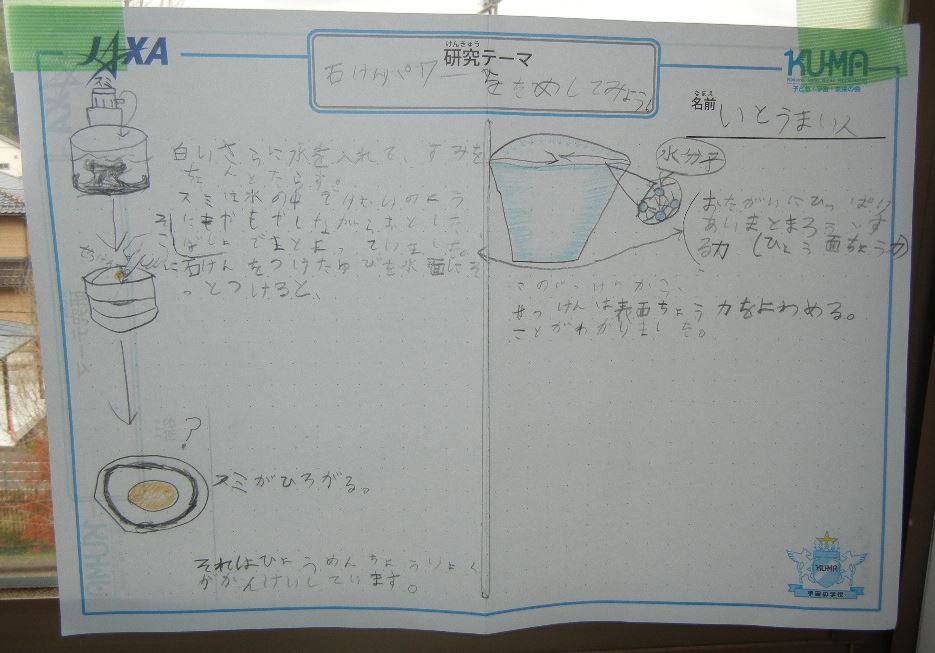 JAXA
けんきゅう
研究テーマ
石けんパワーをためしてみよう!
KUMA
子ども・宇宙・未来の会
なまえ
名前 いとうまい人
スミ
白いさらに水を入れて、すみを
ちょんとたらす。
スミは水の中でけむりのよう
にもやもやしながらおとした
ばしょでまとまっていました。
そこに石けんをつけたゆびを水面にそ
っとつけると、
?
スミがひろがる。
それはひょうめんちょうりょく
がかんけいしています。
水分子
おたがいにひっぱり
あいまとまろうとす
る力(ひょう面ちょう力)
このじっけんから、
せっけんは表面ちょう力をよわめる。
ことがわかりました。
KUMA
宇宙の学校